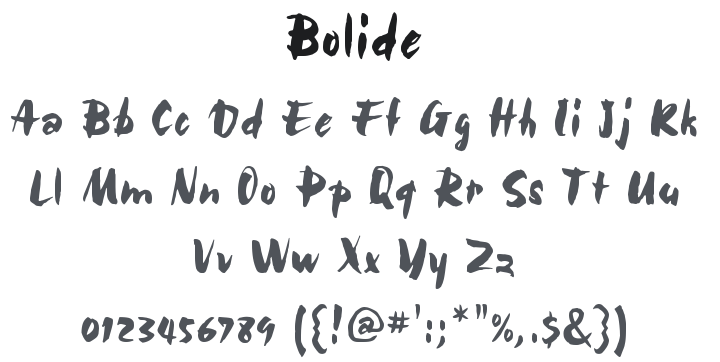 Bolide
Aa Bb Cc Dd Ee Ff Gg Hh Ii Jj Kk
Ll Mm Nn Oo Pp Qq Rr Ss Tt Uu
Vv Ww Xx Yy Zz
0123456789 ({!@#':;*"%,.$&})